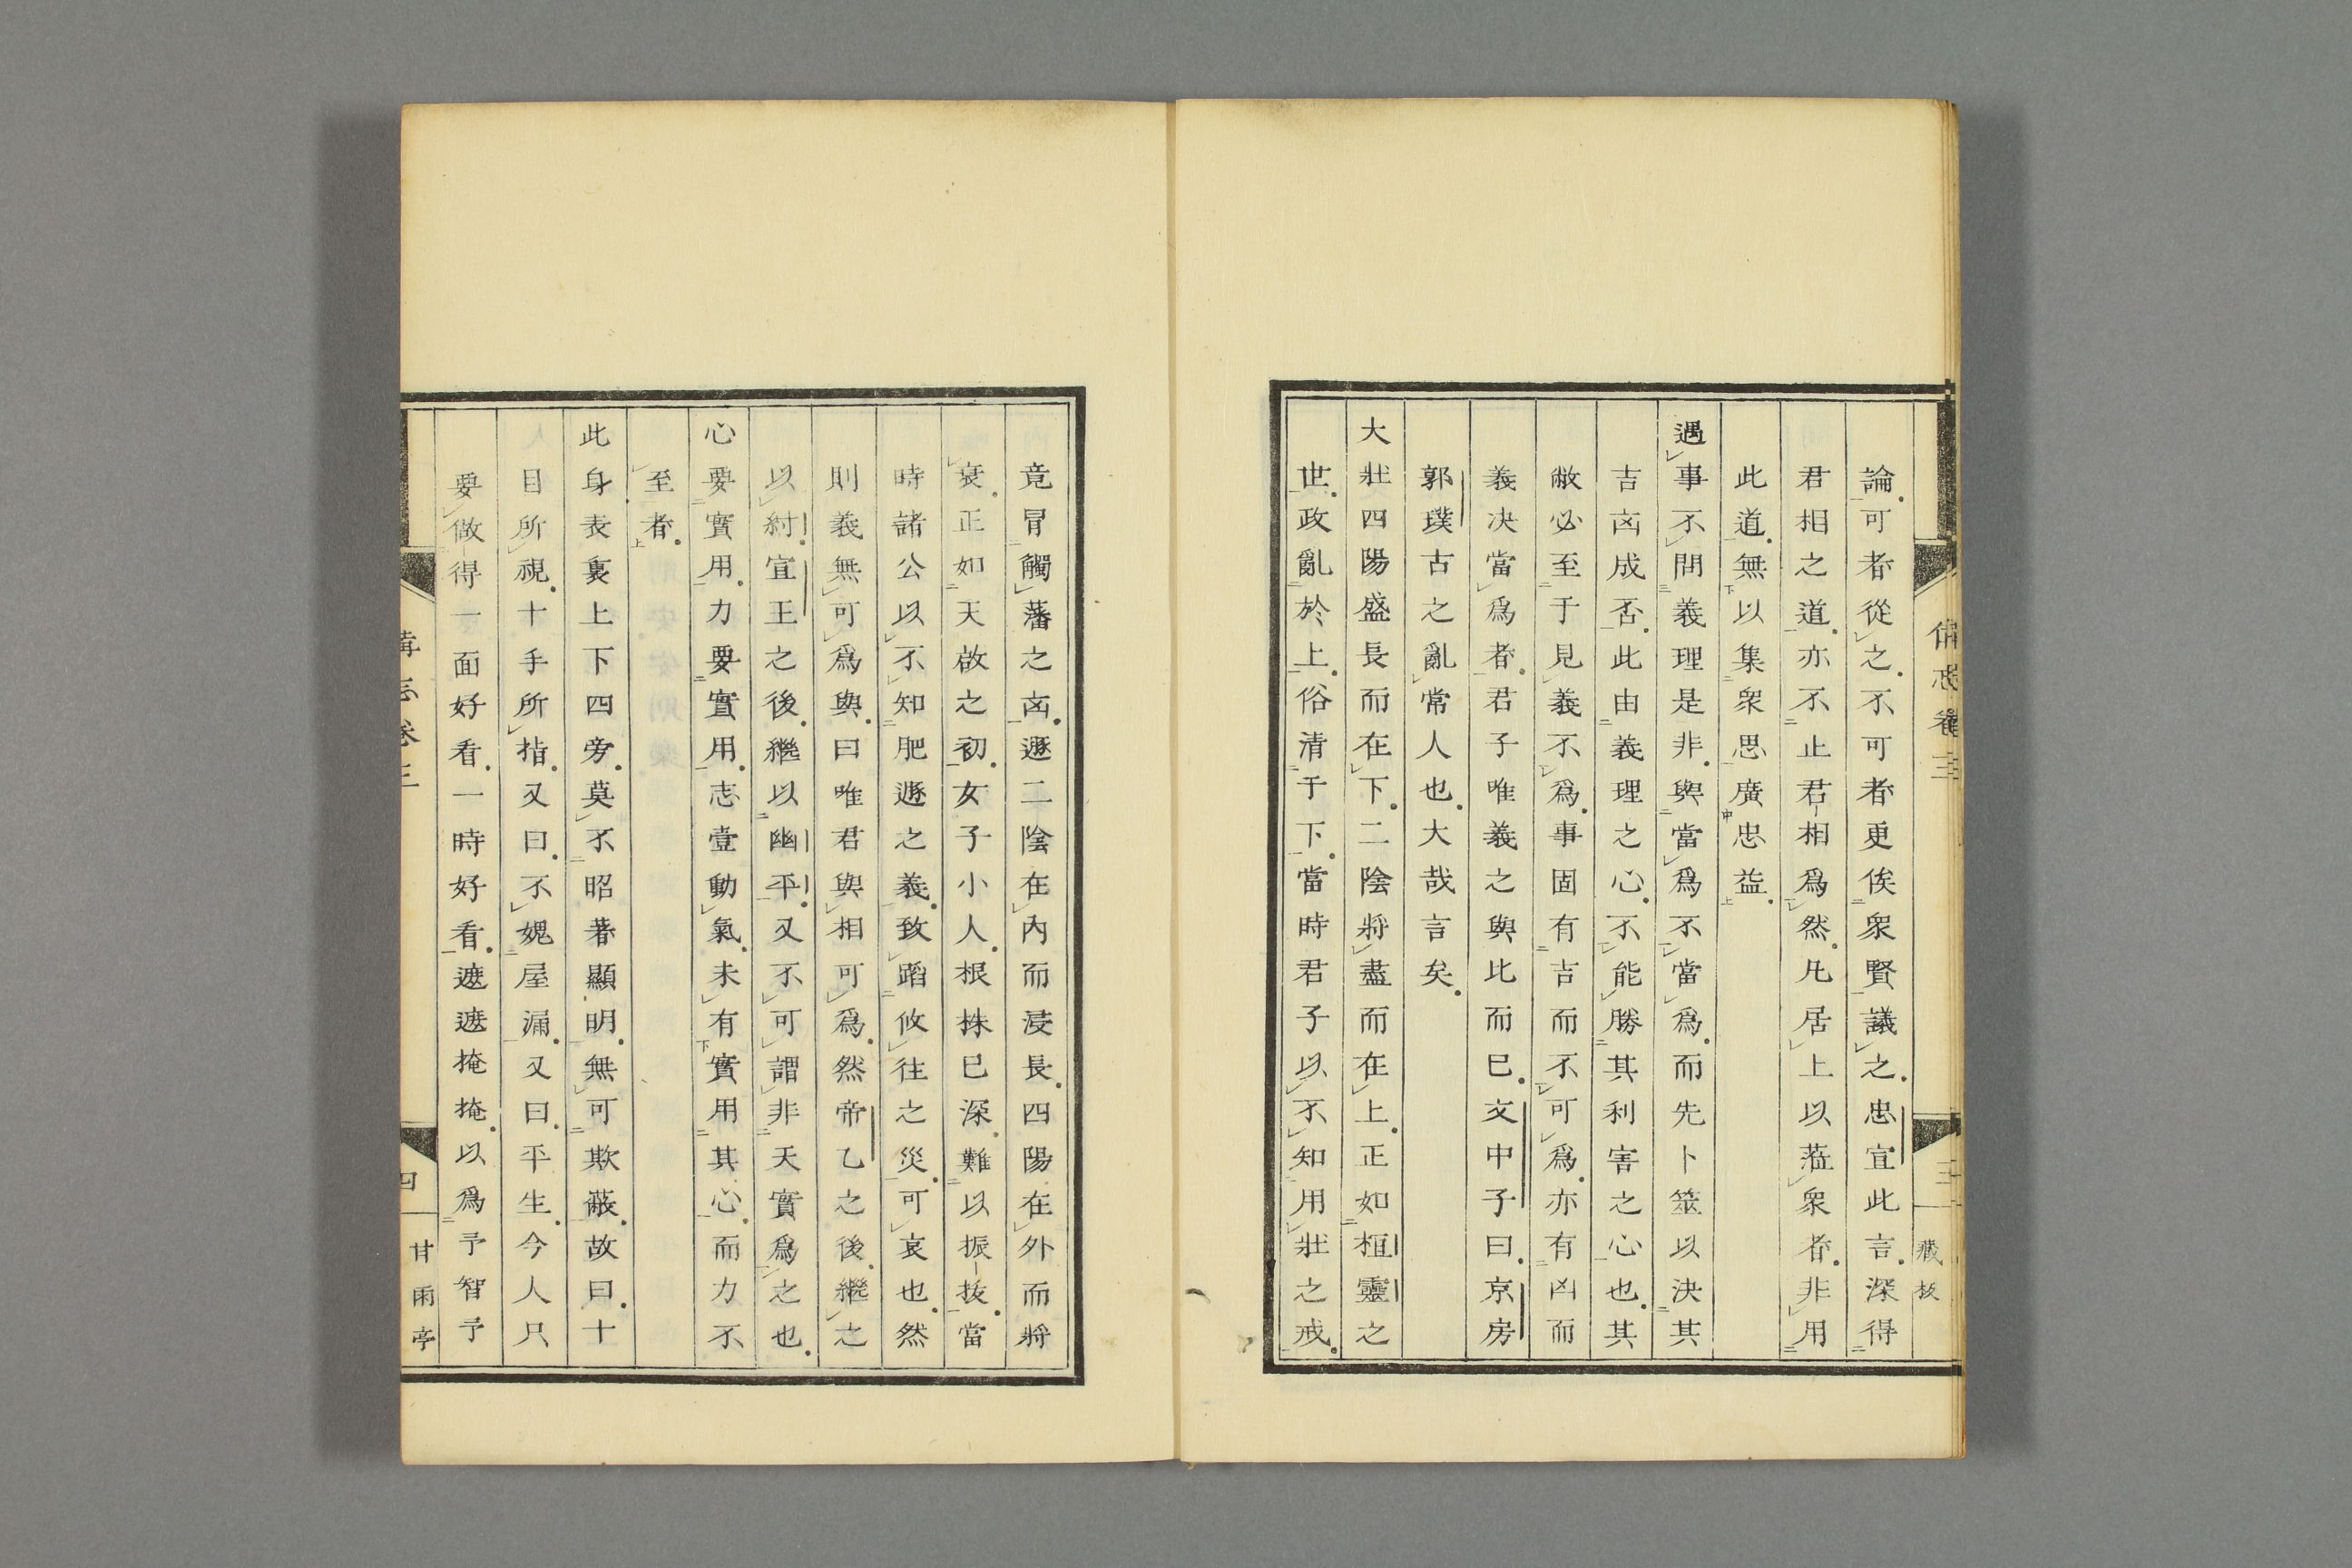 備志卷三
三
藏板
論可者從之不可者更俟衆賢議之忠宣此言深得
君相之道亦不止君相爲然凡居上以蒞衆者非用
此道無以集衆思廣忠益
遇事不問義理是非與當爲不當爲而先卜筮以決其
吉㐫成否此由義理之心不能勝其利害之心也其
敝必至于見義不爲事固有吉而不可爲亦有凶而
義决當爲者君子唯義之與比而已文中子曰京房
郭璞古之亂常人也大哉言矣
大壯四陽盛長而在下二陰將盡而在上正如桓靈之
世政亂於上俗清于下當時君子以不知用壯之戒
竟冒觸藩之㐫遯二陰在內而浸長四陽在外而將
衰正如天啟之初女子小人根株已深難以振拔當
時諸公以不知肥遯之義致蹈攸往之災可哀也然
則義無可爲與曰唯君與相可爲然帝乙之後繼之
以紂宣王之後繼以幽平又不可謂非天實爲之也
心要實用力要實用志壹動氣未有實用其心而力不
至者
此身表裏上下四旁莫不昭著顯明無可欺蔽故曰十
目所視十手所指又曰不媿屋漏又曰平生今人只
要做得一面好看一時好看遮遮掩掩以爲予智予
志卷三
四
甘雨亭